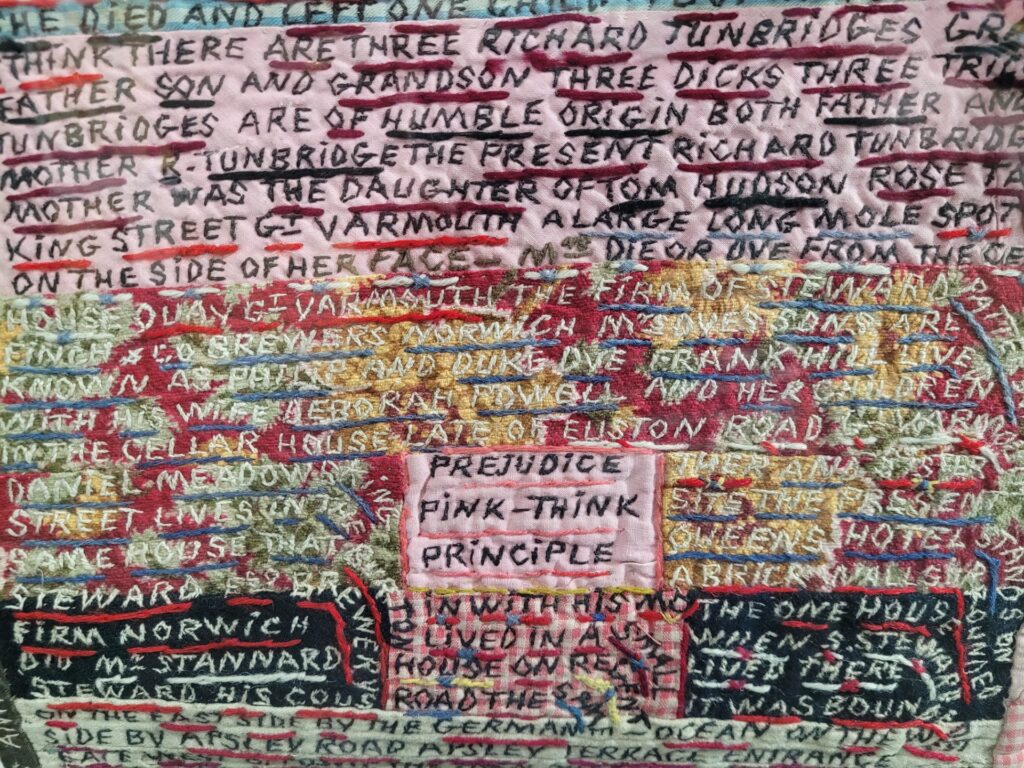 HE DIED AND LEFT ONE CHILD
THINK THERE ARE THREE RICHARD TUNBRIDGES
FATHER SON AND GRANDSON THREE DICKS THREE
TUNBRIDGES ARE OF HUMBLE ORIGIN BOTH FATHER AND
MOTHER R. TUNBRIDGE THE PRESENT RICHARD TUNBRIDG
MOTHER WAS THE DAUGHTER OF TOM HUDSON ROSE
KING STREET GT YARMOUTH A LARGE LONG MOLE SPOT
ON THE SIDE OF HER FACE – MRS DIE OR DYE FROM THE
HOUSE QUAY GT YARMOUTH THE FIRM OF STEWARD PATT
FINCH & CO BREWERS NORWICH MRS DYES SONS ARE
KNOWN AS PHILIP AND DUKE DYE FRANK HILL LIVE
WITH HIS WIFE DEBORAH POWELL AND HER CHILDREN
IN THE CELLAR HOUSE LATE OF EUSTON ROAD GT YARMO
DANIEL MEADOWS KING
STREET LIVES IN THE
SAME HOUSE THAT
STEWARD BREWER
FIRM NORWICH
DID MR STANNARD
STEWARD HIS COUS
PREJUDICE
PINK-THINK
PRINCIPLE
IN WITH HIS MO
LIVED IN A
HOUSE ON REGENT
ROAD THE
SMALL
THER AND SISTER
SITS THE PRESEN
QUEENS HOTEL STANDS ON
A BRICK WALL
THE ONE HOUS
WHEN S STEWARD
LIVED THERE
IT WAS BOUN
BOUNDED
ON THE EAST SIDE BY THE GERMAN – OCEAN ON THE W
SIDE BY APSLEY ROAD APSLEY TERRACE ENTRANCE